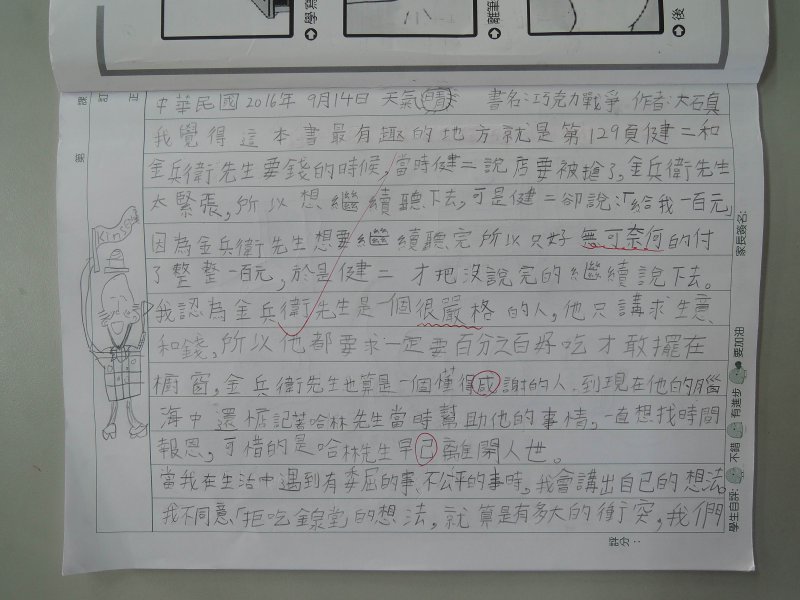 學寫
離筆
後
中華民國2016年 9月14日 天氣 晴 書名:巧克力戰爭 作者:大石真
我覺得這本書最有趣的地方就是第129頁健二和
金兵衛先生要錢的時候,當時健二說店要被搶了,金兵衛先生
太緊張,所以想繼續聽下去,可是健二卻說:「給我一百元」
因為金兵衛先生想要繼續聽完所以只好無可奈何的付
了整整一百元,於是健二才把沒說完的繼續說下去。
我認為金兵衛先生是一個很嚴格的人,他只講求生意
和錢,所以他都要求一定要百分之百好吃才敢擺在
櫥窗,金兵衛先生也算是一個懂得成謝的人.到現在他的腦
海中還惦記著哈林先生當時幫助他的事情,一直想找時間
報恩,可惜的是哈林先生早己離開人世。
當我在生活中遇到有委屈的事、不公平的事時,我會講出自己的想法。
我不同意「拒吃金泉堂」的想法,就算是有多大的衝突,我們
家長簽名:
學生自評: 不錯 有進步 要加油
評分: